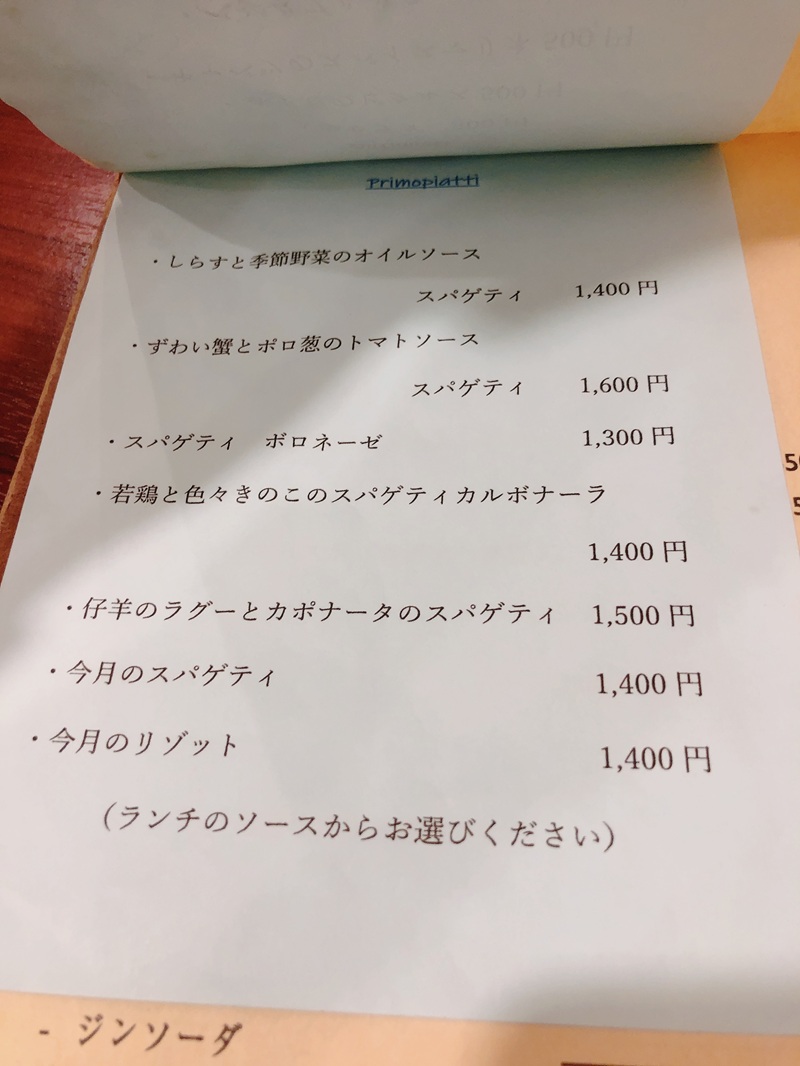 Primopiatti
・しらすと季節野菜のオイルソース
スパゲティ 1,400 円
・ずわい蟹とポロ葱のトマトソース
スパゲティ 1,600 円
・スパゲティ ボロネーゼ 1,300 円
・若鶏と色々きのこのスパゲティカルボナーラ
1,400 円
・仔羊のラグーとカポナータのスパゲティ 1,500 円
・今月のスパゲティ 1,400 円
・今月のリゾット 1,400 円
（ランチのソースからお選びください）
- ジンソーダ